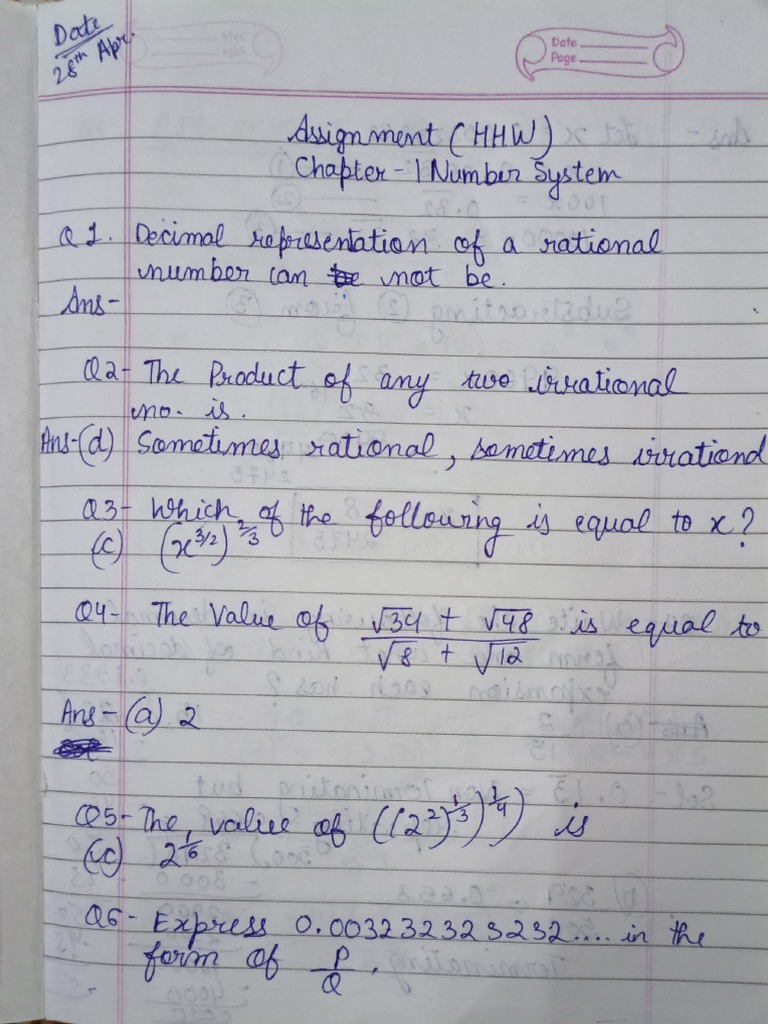 Date
28th Apr.
Date
Page
Assignment (HHW)
Chapter - 1 Number System
Q1. Decimal representation of a rational
number can not be.
Ans-
Q2- The Product of any two irrational
no. is.
Ans-(d) Sometimes rational, sometimes irrationd
Q3- Which of the following is equal to x?
(c) (x^3/2)^2/3
Q4- The Value of (√34 + √48)/(√8 + √12) is equal to
Ans- (a) 2
Q5- The value of ((2²)^1/3)^1/4) is
(c) 2^1/6
Q6- Express 0.00323232 3232.... in the
form of P/Q.